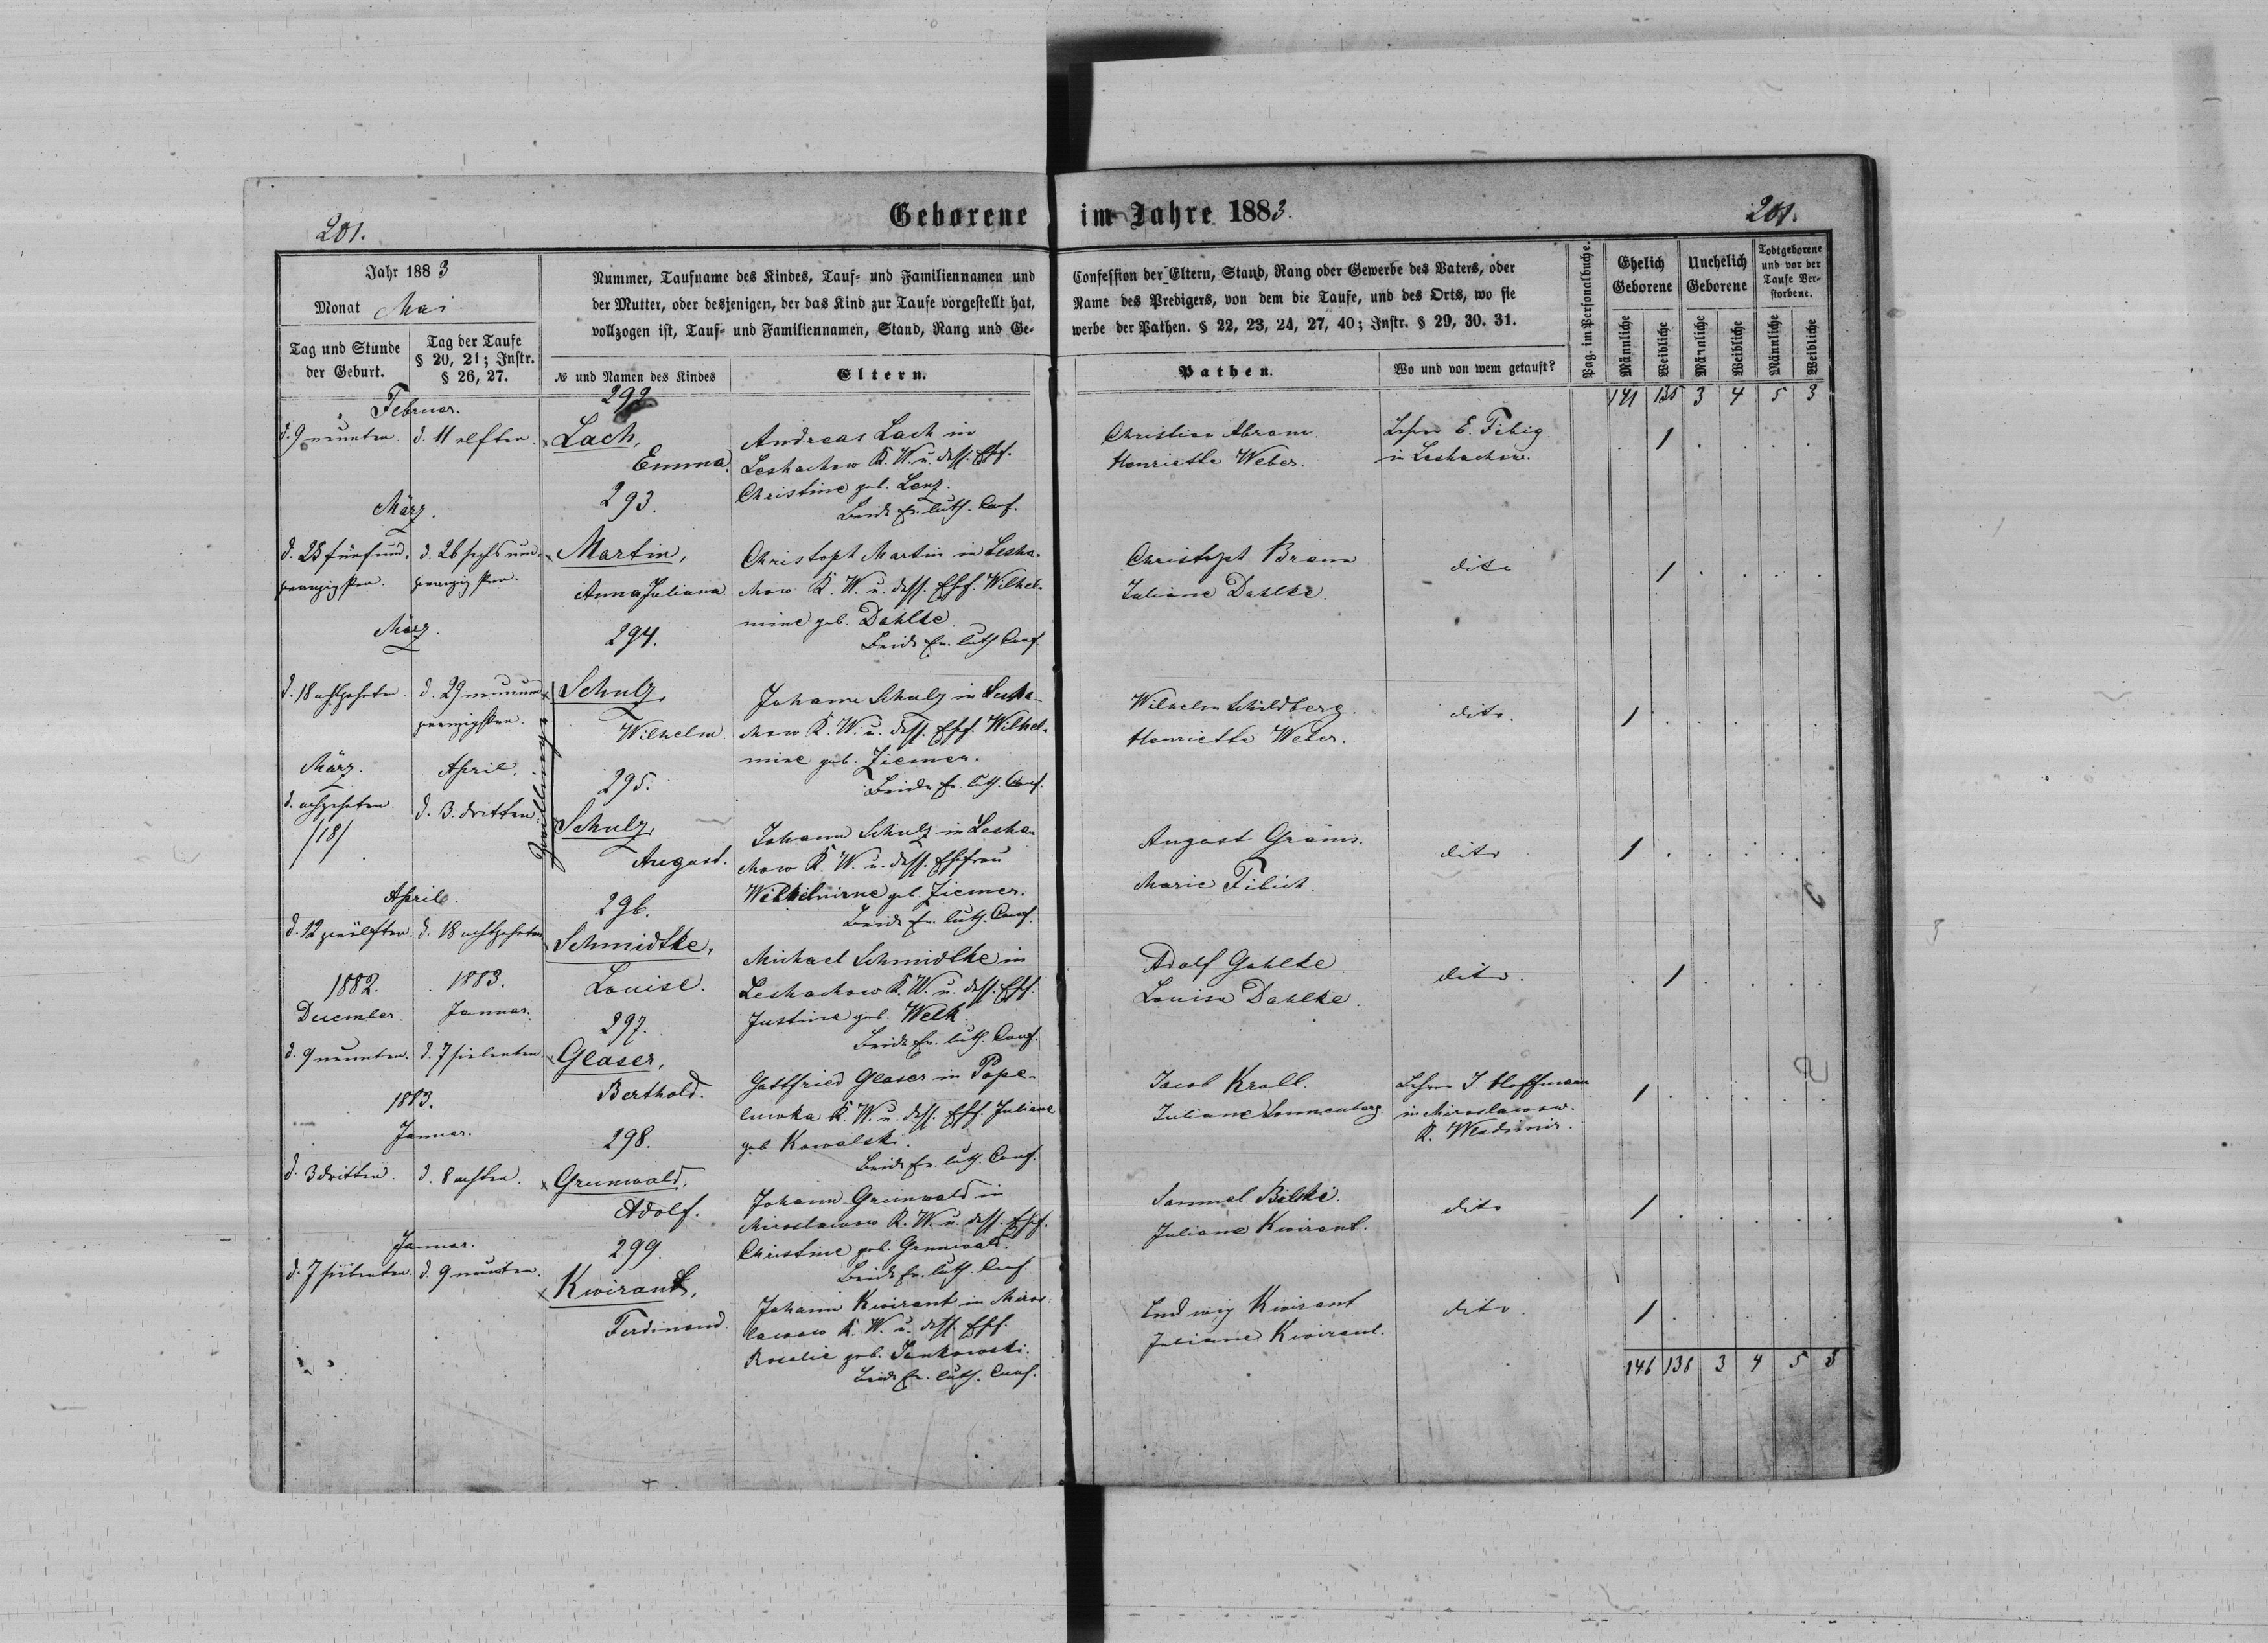 Geborene im Jahre 1883.
201.
201.
Jahr 1883
Monat Mai.
Tag und Stunde
der Geburt.
Tag der Taufe
§ 20, 21; Instr.
§ 26, 27.
Nummer, Taufname des Kindes, Tauf- und Familiennamen und
der Mutter, oder desjenigen, der das Kind zur Taufe vorgestellt hat,
vollzogen ist, Tauf- und Familiennamen, Stand, Rang und Ge-
№ und Namen des Kindes
Eltern.
Confession der Eltern, Stand, Rang oder Gewerbe des Vaters, oder
Name des Predigers, von dem die Taufe, und des Orts, wo sie
werbe der Pathen. § 22, 23, 24, 27, 40; Instr. § 29, 30. 31.
Pathen.
Wo und von wem getauft?
Pag. im Personalbuche.
Ehelich
Geborene
Unehelich
Geborene
Todtgeborene
und vor der
Taufe Ver-
storbene.
Männliche
Weibliche
Männliche
Weibliche
Männliche
Weibliche
141 135 3 4 5 3
Februar.
d. 9 neunten.
d. 11 elften.
292
Lach,
Emma.
Andreas Lach in
Leshachow K. W. u. dess. Ehf.
Christine geb. Lenz.
Beide ev. luth. Conf.
Christian Abram.
Henriette Weber.
Lehrer E. Fibig
in Leshachow.
1
März.
d. 25 fünfund-
zwanzigsten.
d. 26 sechsund-
zwanzigsten.
293.
Martin,
Anna Juliana
Christoph Martin in Lesha-
chow K. W. u. dess. Ehf. Wilhel-
mine geb. Dahlke.
Beide ev. luth. Conf.
Christoph Bram
Juliane Dahlke.
dito
1
März.
d. 18 achtzehnten
d. 29 neunund-
zwanzigsten.
Zwillinge
294.
Schulz,
Wilhelm.
Johann Schulz in Lesha-
chow K. W. u. dess. Ehf. Wilhel-
mine geb. Ziemer.
Beide ev. luth. Conf.
Wilhelm Schildberg.
Henriette Weber.
dito.
1
März.
April.
d. achtzehnten.
/18/
d. 3. dritten.
295.
Schulz,
August.
Johann Schulz in Lesha-
chow K. W. u. dess. Ehfrau
Wilhelmine geb. Ziemer.
Beide ev. luth. Conf.
August Grams.
Marie Fibich.
dito
1
April.
d. 12 zwölften.
d. 18 achtzehnten
296.
Schmidtke,
Louise.
Michael Schmidtke in
Leshachow K. W. u. dess. Ehf.
Justine geb. Welk.
Beide ev. luth. Conf.
Adolf Gahlke
Louise Dahlke.
dito.
1
1882.
December.
1883.
Januar.
d. 9 neunten.
d. 7 siebenten.
297.
Glaser,
Berthold.
Gottfried Glaser in Pope-
luwka K. W. u. dess. Ehf. Juliane
geb. Kowalski.
Beide ev. luth. Conf.
Jacob Kroll.
Juliane Sonnenberg.
Lehrer J. Hoffmann
in Miroslawow.
K. Wladimir.
1
1883.
Januar.
d. 3 dritten.
d. 8 achten.
298.
Grunwald,
Adolf.
Johann Grunwald in
Miroslawow K. W. u. dess. Ehf.
Christine geb. Grunwald.
Beide ev. luth. Conf.
Samuel Bilski.
Juliane Kwirant.
dito
1
Januar.
d. 7 siebenten.
d. 9 neunten.
299.
Kwirant,
Ferdinand.
Johann Kwirant in Miros-
lawow K. W. u. dess. Ehf.
Rosalie geb. Jankowski.
Beide ev. luth. Conf.
Ludwig Kwirant
Juliane Kwirant.
dito.
1
146 138 3 4 5 3